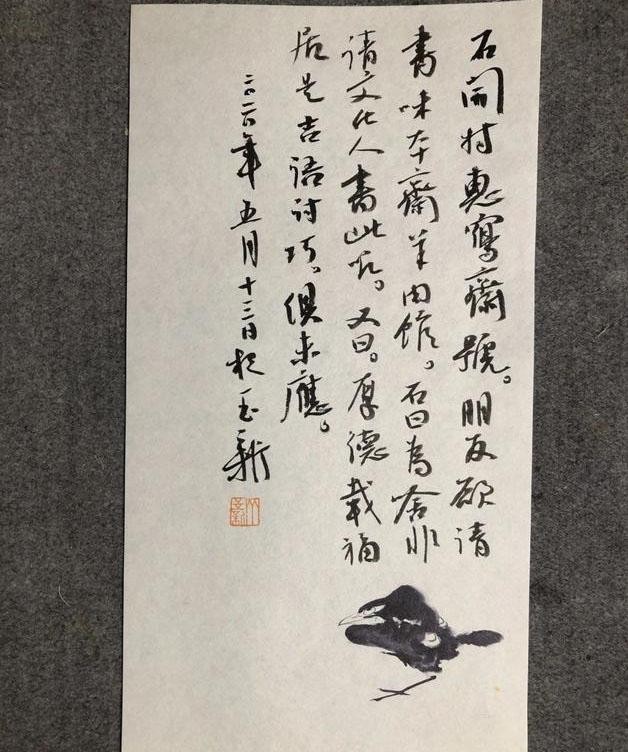 石開特惠寫齋號。朋友欲請
書味本齋羊肉館。石曰為啥非
請文化人書此呢。又曰。厚德載福
居是吉語討巧。俱未應。
二〇二〇年五月十三日於玉新